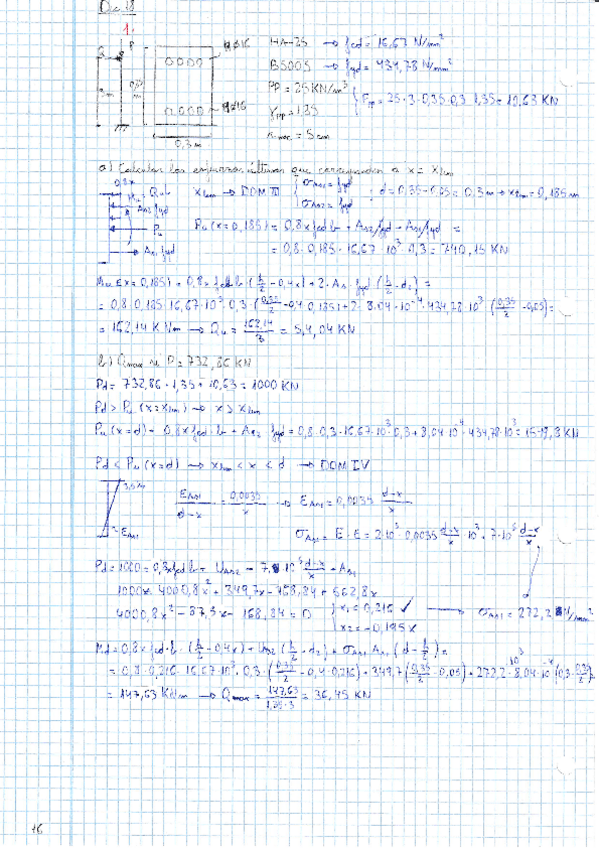 Dic 18
1.
HA-25 → fcd = 16,67 N/mm²
B500S → fyd = 434,78 N/mm²
PP = 25 KN/m³
γpp = 1,35
Ppp = 25·3·0,35·0,3·1,35 = 10,63 KN
r mec = 5 cm
0,3 m
a) Calcular los esfuerzos últimos que corresponden a x = xlim
xlim → DOM III
d = 0,35-0,05 = 0,3 m → xlim = 0,185 m
Pu (x=0,185) = 0,8x fcd b + As2 fyd - As1 fyd =
= 0,8·0,185·16,67·10³·0,3 = 740,15 KN
Mu (x=0,185) = 0,8x fcd b · (h/2 - 0,4x) + 2·As fyd (h/2 - d2) =
= 0,8·0,185·16,67·10³·0,3·(0,35/2 - 0,4·0,185) + 2·8,04·10⁻⁴·434,78·10³·(0,35/2 - 0,05) =
= 162,14 KNm → Qu = 162,14/3 = 54,04 KN
b) Qmax si P = 732,86 KN
Pd = 732,86·1,35 + 10,63 = 1000 KN
Pd > Pu (x=xlim) → x > xlim
Pu (x=d) = 0,8x fcd b + As2 fyd = 0,8·0,3·16,67·10³·0,3 + 8,04·10⁻⁴·434,78·10³ =
Pd < Pu (x=d) → xlim < x < d → DOM IV
εAs1/(d-x) = 0,0035/x → εAs1 = 0,0035 (d-x)/x
σAs1 = E·ε = 2·10⁵·0,0035 (d-x)/x ·10³ = 7·10⁵ (d-x)/x
Pd = 1000 = 0,8x fcd b + UAs2 - 7·10⁵ (d-x)/x · As1
1000x = 4000,8x² + 349,7x - 168,84 + 562,8x
4000,8x² - 87,5x - 168,84 = 0
x1 = 0,216 ✓ → σAs1 = 272,2 N/mm²
x2 = -0,195 x
Md = 0,8x fcd b · (h/2 - 0,4x) + Us2 (h/2 - d2) + σAs1 As1 (d - h/2) =
= 0,8·0,216·16,67·10³·0,3·(0,35/2 - 0,4·0,216) + 349,7(0,35/2 - 0,05) + 272,2·10³·8,04·10⁻⁴(0,3 - 0,35/2) =
= 147,63 KNm → Qmax = 147,63/1,35·3 = 36,45 KN
16